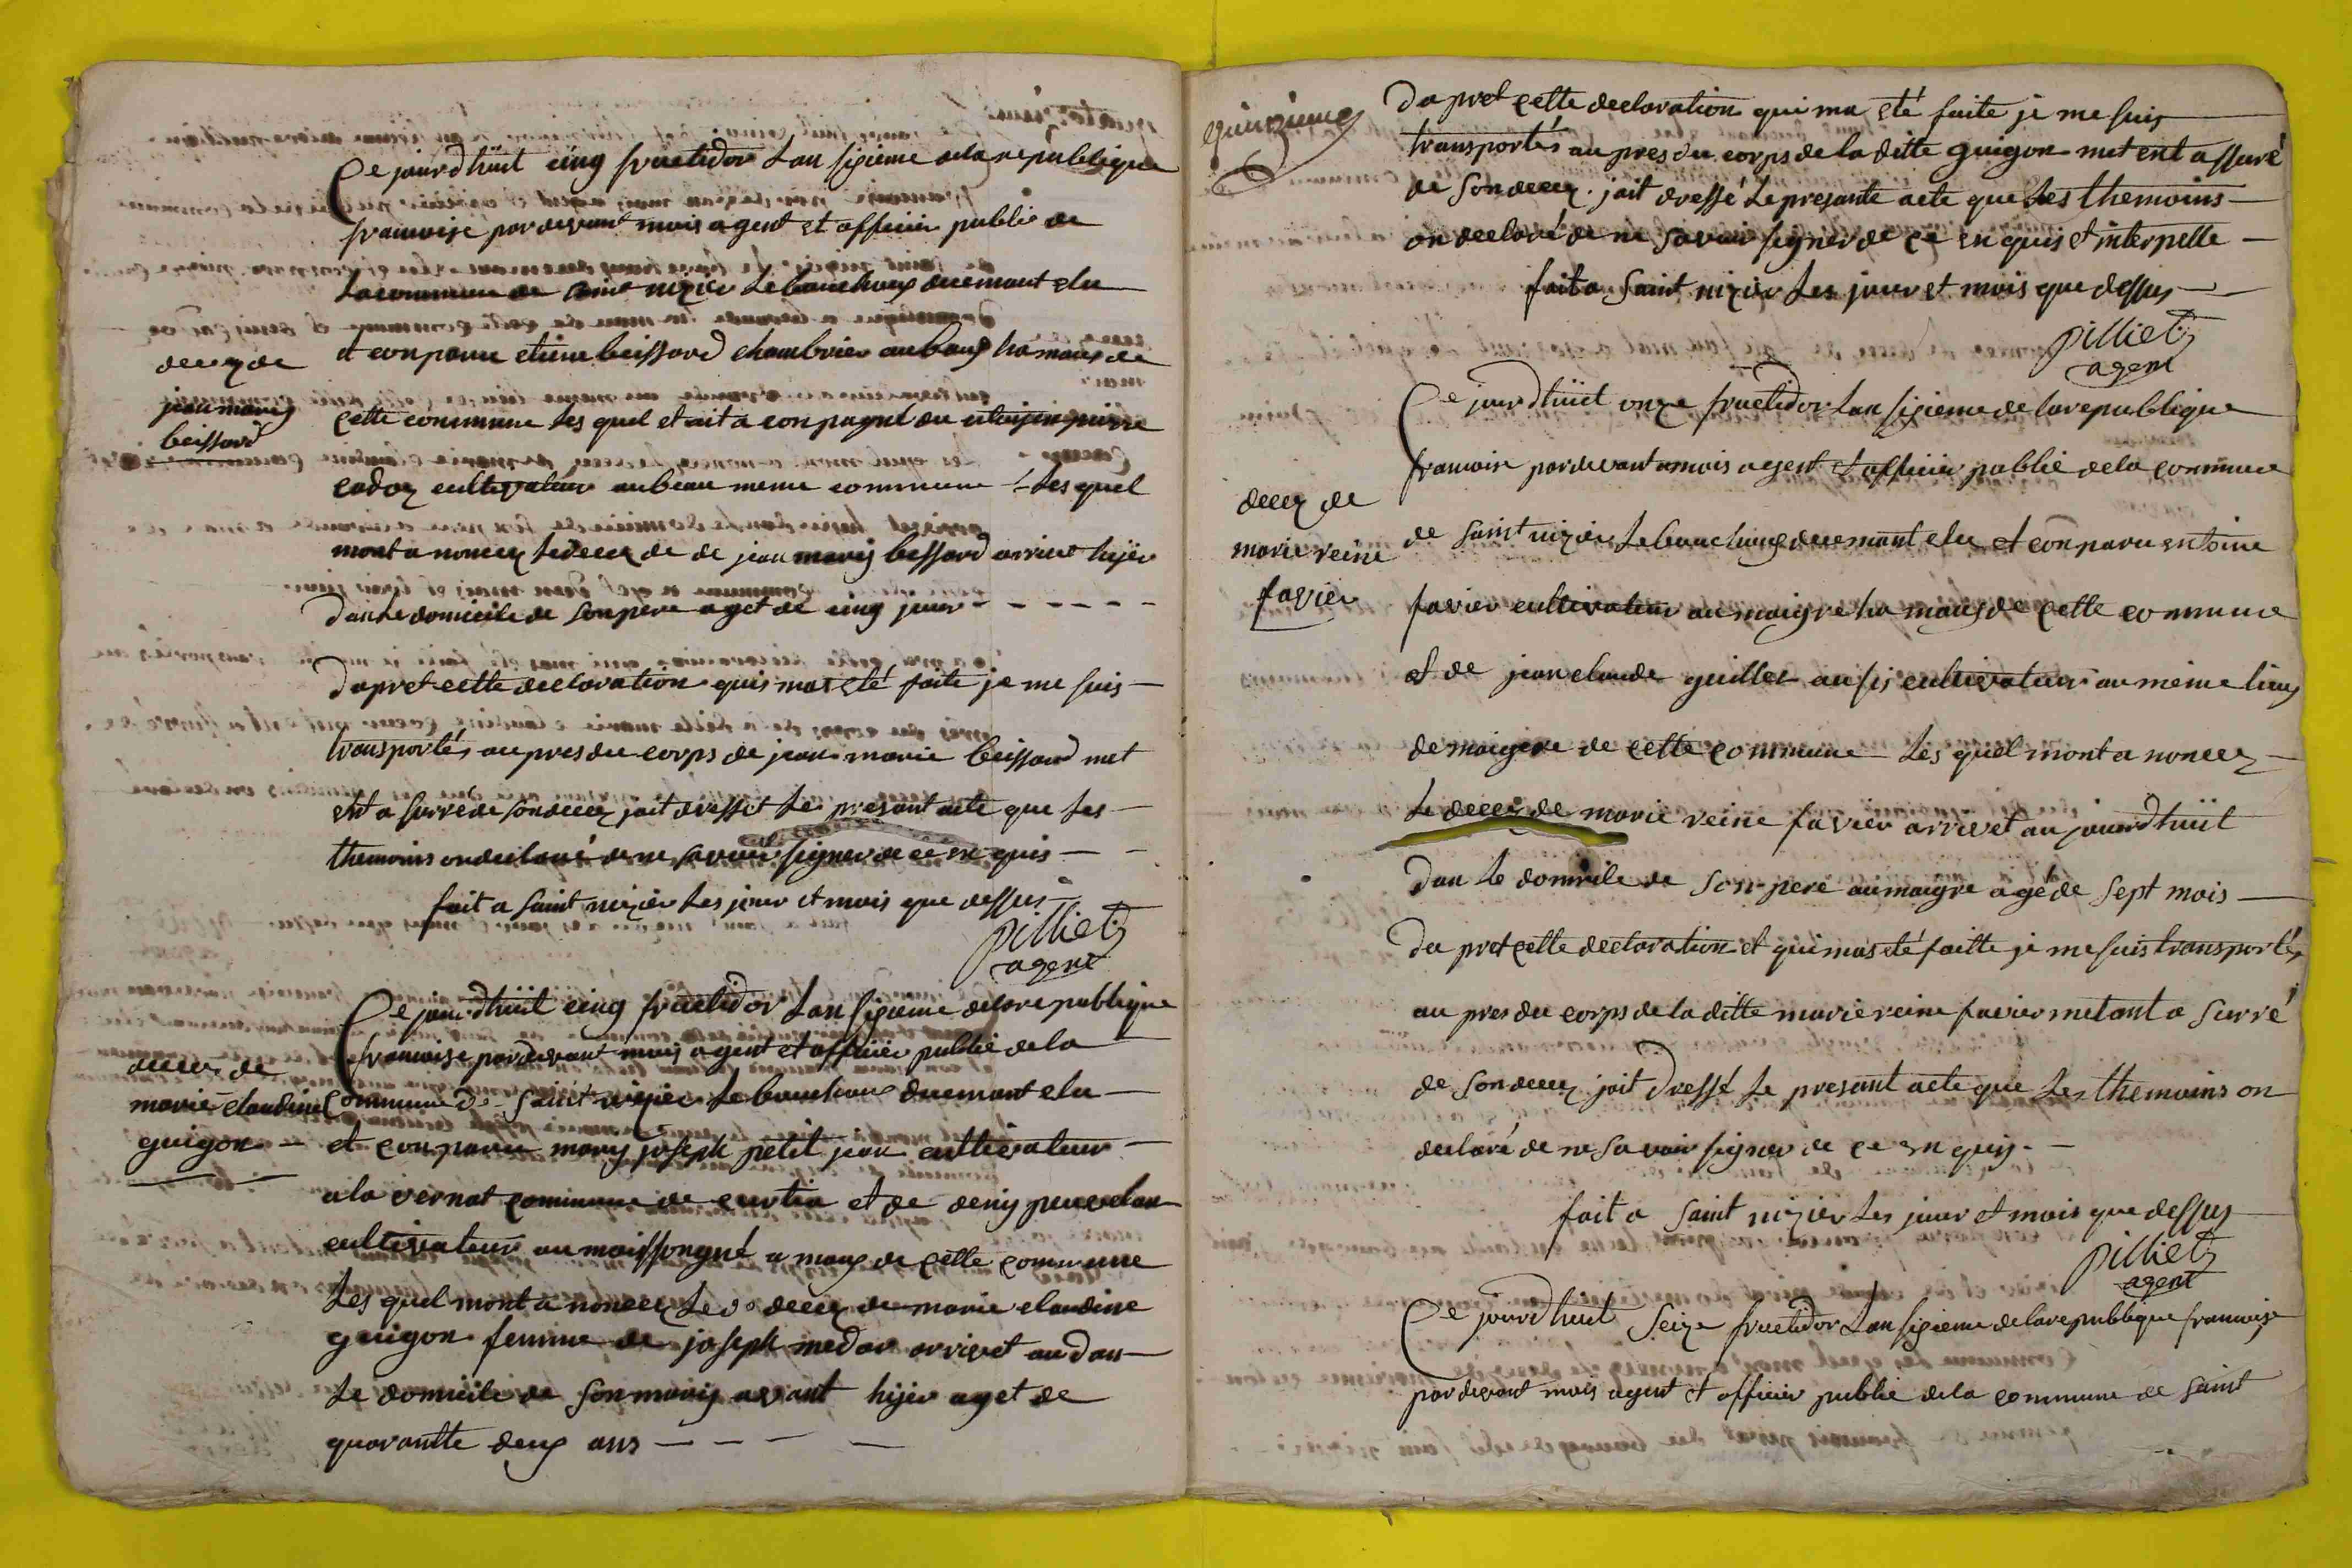 Ce jourd'huit cinq fructidor Lan sixieme dela republique
francoise par devant mois agent et officier public de
La commune de saint nizier Lebouchoux duemant elu
deces de
jean marij
beissard
et conparu etiene beissard chambrier au baux hamaux de
cette commune Les quel etait a conpagné du citoijen pierre
cadoz cultivateur au beau meme commune Les quel
mont a noncez Ledecez de de jean marij bessard arrivet hijer
dan Le domicile de son pere aget de cinq jour - - - - -
Dapret cette decloration quis mas eté faite je me suis
transportés au pres du corps de jean marie beissard met
ent a surré de son decez jait dresset Le presant acte que Les
themoins on declaré de ne savoir signer de ce en quis
fait a saint nizier Les jour et mois que dessus
pilliet
agent
Ce jourd'huit cinq fructidor Lan sixieme delarepublique
francoise par devant mois agent et officier public dela
deces de
marie claudine
guigon
commune de saint nizier Le bouchoux duemant elu
et conparu marij joseph petit jean cultivateur
a la vernat commune de curtia et de denij
cultivateur au moissongné a maux de cette commune
Les quel mont a noncez Le decez de marie claudine
guigon femme de joseph medar arrivet au dan
Le domicile de son marij avant hijer aget de
quarantte deux ans - - - -
quinzieme
Dapret cette decloration qui ma eté faite je me suis
transportés au pres du corps de la ditte guigon met ent assuré
de son decez. jait dressé Le presante acte que Les themoins
on decloré de ne savoir signer de ce en quis et interpelle
fait a saint nizier Les jour et mois que dessus
pilliet
agent
Ce jour d'huit onze fructidor Lan sixieme de la republique
francoise par devant mois agent et officier public dela commune
decez de
marie reine
favier
de saint nizier Lebouchoux duemant elu et conparu entoine
favier cultivateur au maigre ha maux de cette commune
et de jean claude guillet au si cultivateur au même lieux
de maigere de cette commune Les quel mont a noncez
Le decez de marie reine favier arrivet au jourd'huit
dan Le domicile de son pere au maigre agé de sept mois
Da pret cette decloration et qui mas eté faitte je me suis transportés
au pres du corps de la ditte marie reine favier metant a surré
de son decez jait dressé Le presant acte que Les themoins on
decloré de ne savoir signer de ce en quis
fait a saint nizier Les jour et mois que dessus
pilliet
agent
Ce jourd'huit seize fructidor Lan sixieme de la republique francoise
par devant mois agent et officier public dela commune de saint